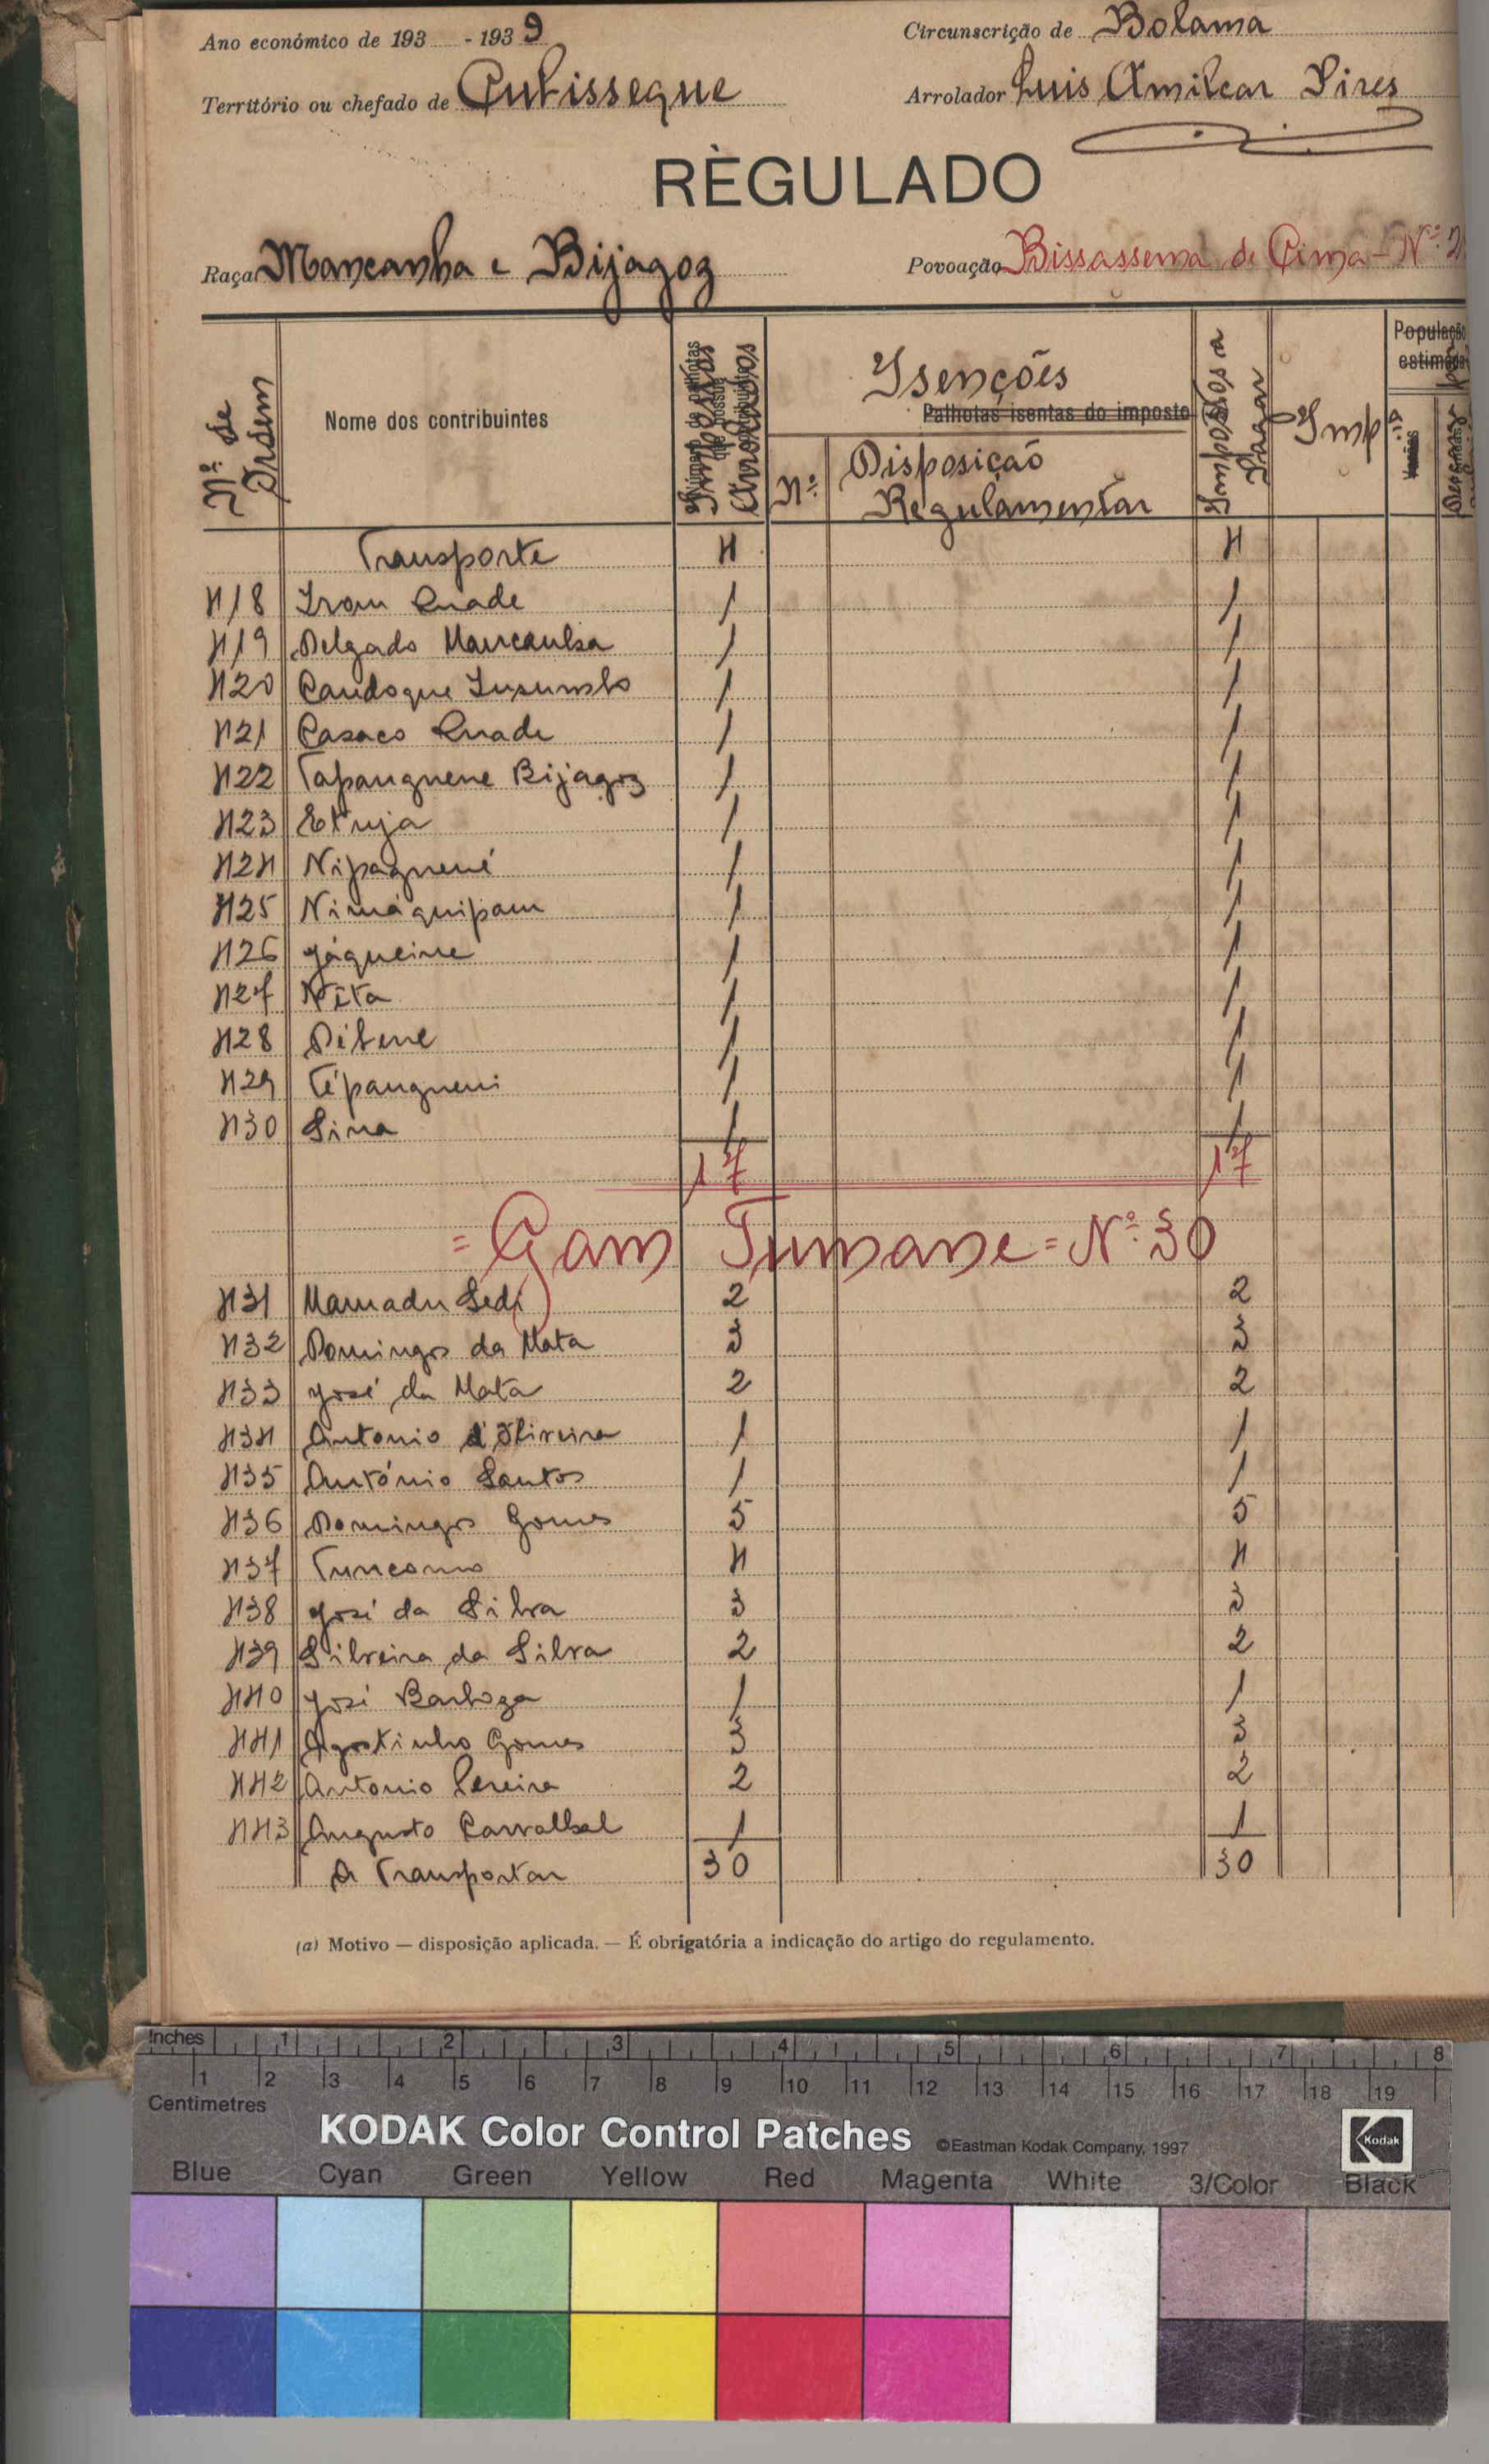 Ano económico de 193 - 1939
Circunscrição de Bolama
Território ou chefado de Cutissegue
Arrolador Luis Amilcar Pires
RÈGULADO
Raça Mancanha e Bijagoz
Povoação Bissassema de Cima - Nº 2
Nº de Ordem
Nome dos contribuintes
Impostos Arrolados
Isenções
Palhotas isentas do imposto
Nº
Disposição Regulamentar
Impostos a Pagar
Imp
População estimada
Varões
Transporte 4 4
418 Irom Quade 1 1
419 Delgado Mancanha 1 1
420 Candoque 1 1
421 Casaco Quade 1 1
422 Tapanguene Bijagoz 1 1
423 Etuja 1 1
424 Nipaguené 1 1
425 Nimáquipam 1 1
426 Jáqueine 1 1
427 Nêta 1 1
428 Détene 1 1
429 Tépangueni 1 1
430 Sina 1 1
17 17
= Gam Tumane = Nº 30
431 Mamadu Sedi 2 2
432 Domingos da Mata 3 3
433 José da Mata 2 2
434 Antonio d'Oliveira 1 1
435 António Santos 1 1
436 Domingos Gomes 5 5
437 4 4
438 José da Silva 3 3
439 Silveira da Silva 2 2
440 José Barboza 1 1
441 Agostinho Gomes 3 3
442 Antonio Pereira 2 2
443 Augusto Carvalhal 1 1
A Transportar 30 30
(a) Motivo — disposição aplicada. — É obrigatória a indicação do artigo do regulamento.
Inches 1 2 3 4 5 6 7 8
1 2 3 4 5 6 7 8 9 10 11 12 13 14 15 16 17 18 19
Centimetres
KODAK Color Control Patches ©Eastman Kodak Company, 1997 Kodak
Blue Cyan Green Yellow Red Magenta White 3/Color Black